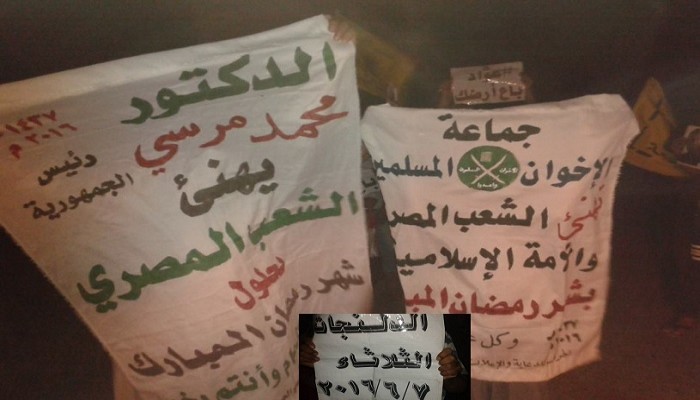 الدكتور
محمد مرسي
رئيس
الجمهورية
١٤٣٧
٢٠١٦ م
يهنئ
الشعب المصري
بحلول
شهر رمضان المبارك
وأنتم
باع أرضك
جماعة
الإخوان المسلمين
تهنئ الشعب المصر
والأمة الإسلامية
بشهر رمضان المب
٢٠١٦
وكل
الدلنجات
الثلاثاء
٢٠١٦/٦/٧